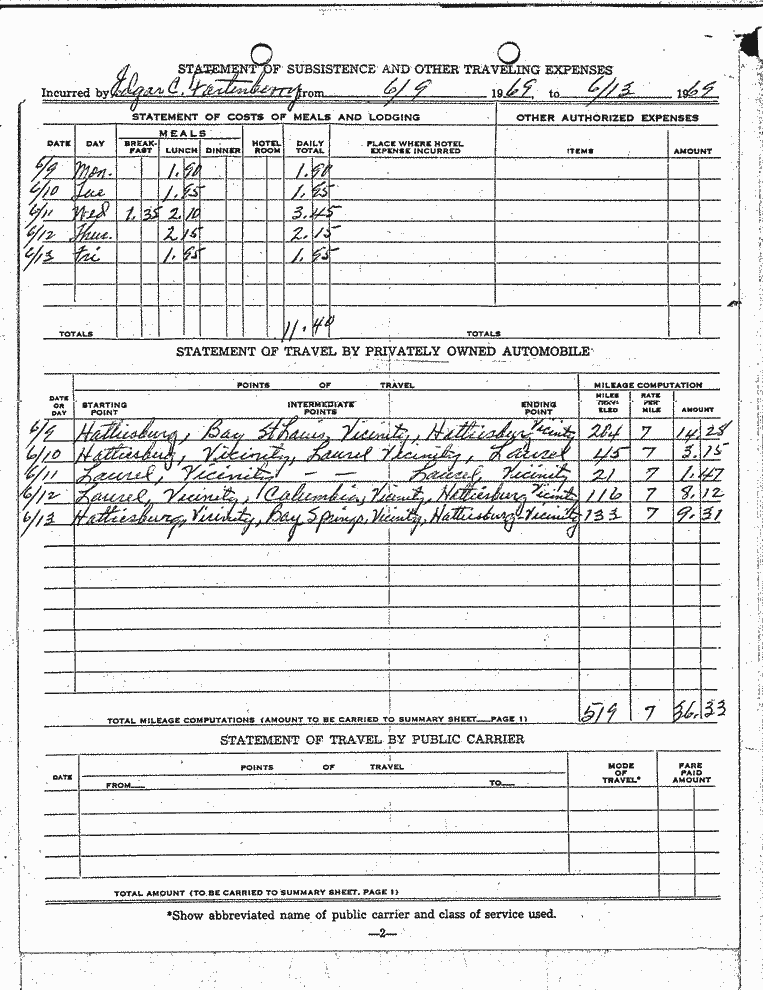 STATEMENT OF SUBSISTENCE AND OTHER TRAVELING EXPENSES
Incurred by Edgar C. Fortenberry from 6/9 1969 to 6/13 1969
STATEMENT OF COSTS OF MEALS AND LODGING OTHER AUTHORIZED EXPENSES
MEALS
DATE DAY BREAK-FAST LUNCH DINNER HOTEL ROOM DAILY TOTAL PLACE WHERE HOTEL EXPENSE INCURRED ITEMS AMOUNT
6/9 Mon. 1.90 1.90
6/10 Tue 1.95 1.95
6/11 Wed 1.35 2.10 3.45
6/12 Thus. 2.15 2.15
6/13 Fri 1.95 1.95
TOTALS 11.40 TOTALS
STATEMENT OF TRAVEL BY PRIVATELY OWNED AUTOMOBILE
POINTS OF TRAVEL MILEAGE COMPUTATION
DATE OR DAY STARTING POINT INTERMEDIATE POINTS ENDING POINT MILES TRAV-ELED RATE PER MILE AMOUNT
6/9 Hattiesburg, Bay St Louis, Vicinity, Hattiesburg Vicinity 204 7 14.28
6/10 Hattiesburg, Vicinity, Laurel Vicinity, Laurel 45 7 3.15
6/11 Laurel, Vicinity — — Laurel Vicinity 21 7 1.47
6/12 Laurel, Vicinity, Columbia, Vicinity, Hattiesburg Vicinity 116 7 8.12
6/13 Hattiesburg, Vicinity, Bay Springs, Vicinity, Hattiesburg Vicinity 133 7 9.31
TOTAL MILEAGE COMPUTATIONS (AMOUNT TO BE CARRIED TO SUMMARY SHEET—PAGE 1) 519 7 36.33
STATEMENT OF TRAVEL BY PUBLIC CARRIER
DATE POINTS OF TRAVEL MODE OF TRAVEL* FARE PAID AMOUNT
FROM— TO—
TOTAL AMOUNT (TO BE CARRIED TO SUMMARY SHEET, PAGE 1)
*Show abbreviated name of public carrier and class of service used.
—2—